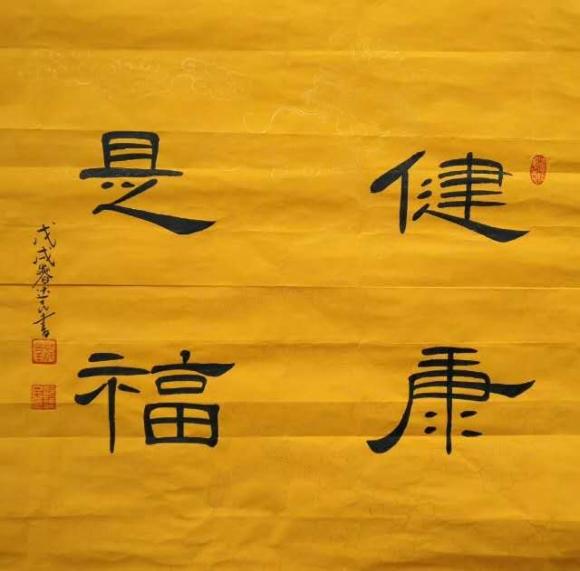 健康
是福
戊戌春建元書